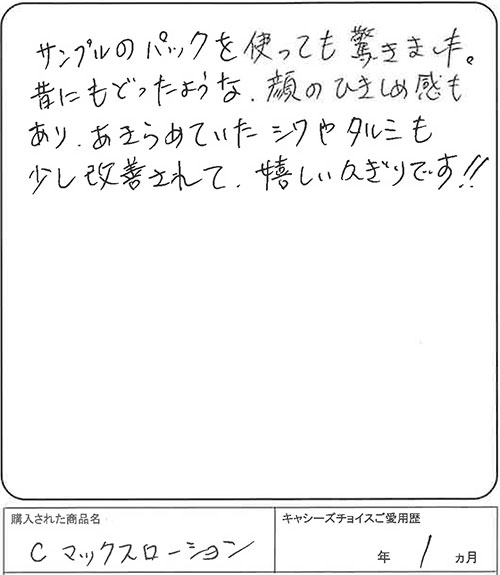 サンプルのパックを使っても驚きました。
昔にもどったような、顔のひきしめ感も
あり、あきらめていたシワやタルミも
少し改善されて、嬉しいかぎりです!!
購入された商品名
C マックスローション
キャシーズチョイスご愛用歴
年 1 ヵ月